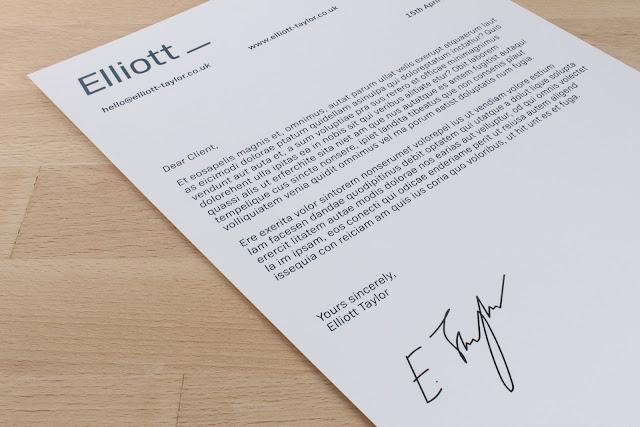 Elliott _
www.elliott-taylor.co.uk
15th April
hello@elliott-taylor.co.uk
Dear Client,
Et eosapelis magnis et, omnimus, autat parum ullat velis exerupt atquaerum laut
as eicimodi dolorae ptatum quidellam asincipsa qui doloreptatum inctatur? Quis
vendunt aut auta eri, a sum voluptias pra sus rerero et officae minimagnimus
dolorehent ulla nitas ea in nobis sit qui veribus alitiate etur? Obit laborem
quassi alis ut erferchite sita niet am que nus autatque es antem fugitist autaqui
tempelique cus sincte nonsere, imet landita tibeatus que non consenis plaut
volliquiatem venia quidit omnimus vel ma porum eatist doluptatis num fugia.
Ere exerita volor sintorem nonserumet volorepel ius ut vendiam volore estium
lam facesen dandae quodipitinus debit optatem qui utatque a dolut lique solupta
erercit litatem autae modis dolorae nos earias aut velluptur, od qui omnis volectet
la im ipsam, eos conecti qui odicae enderiane pent ut reiusa autem aligend
issequia con reiciam am quis ius coria quo voloribus, ut hit unt es et fuga.
Yours sincerely,
Elliott Taylor
E. Taylor